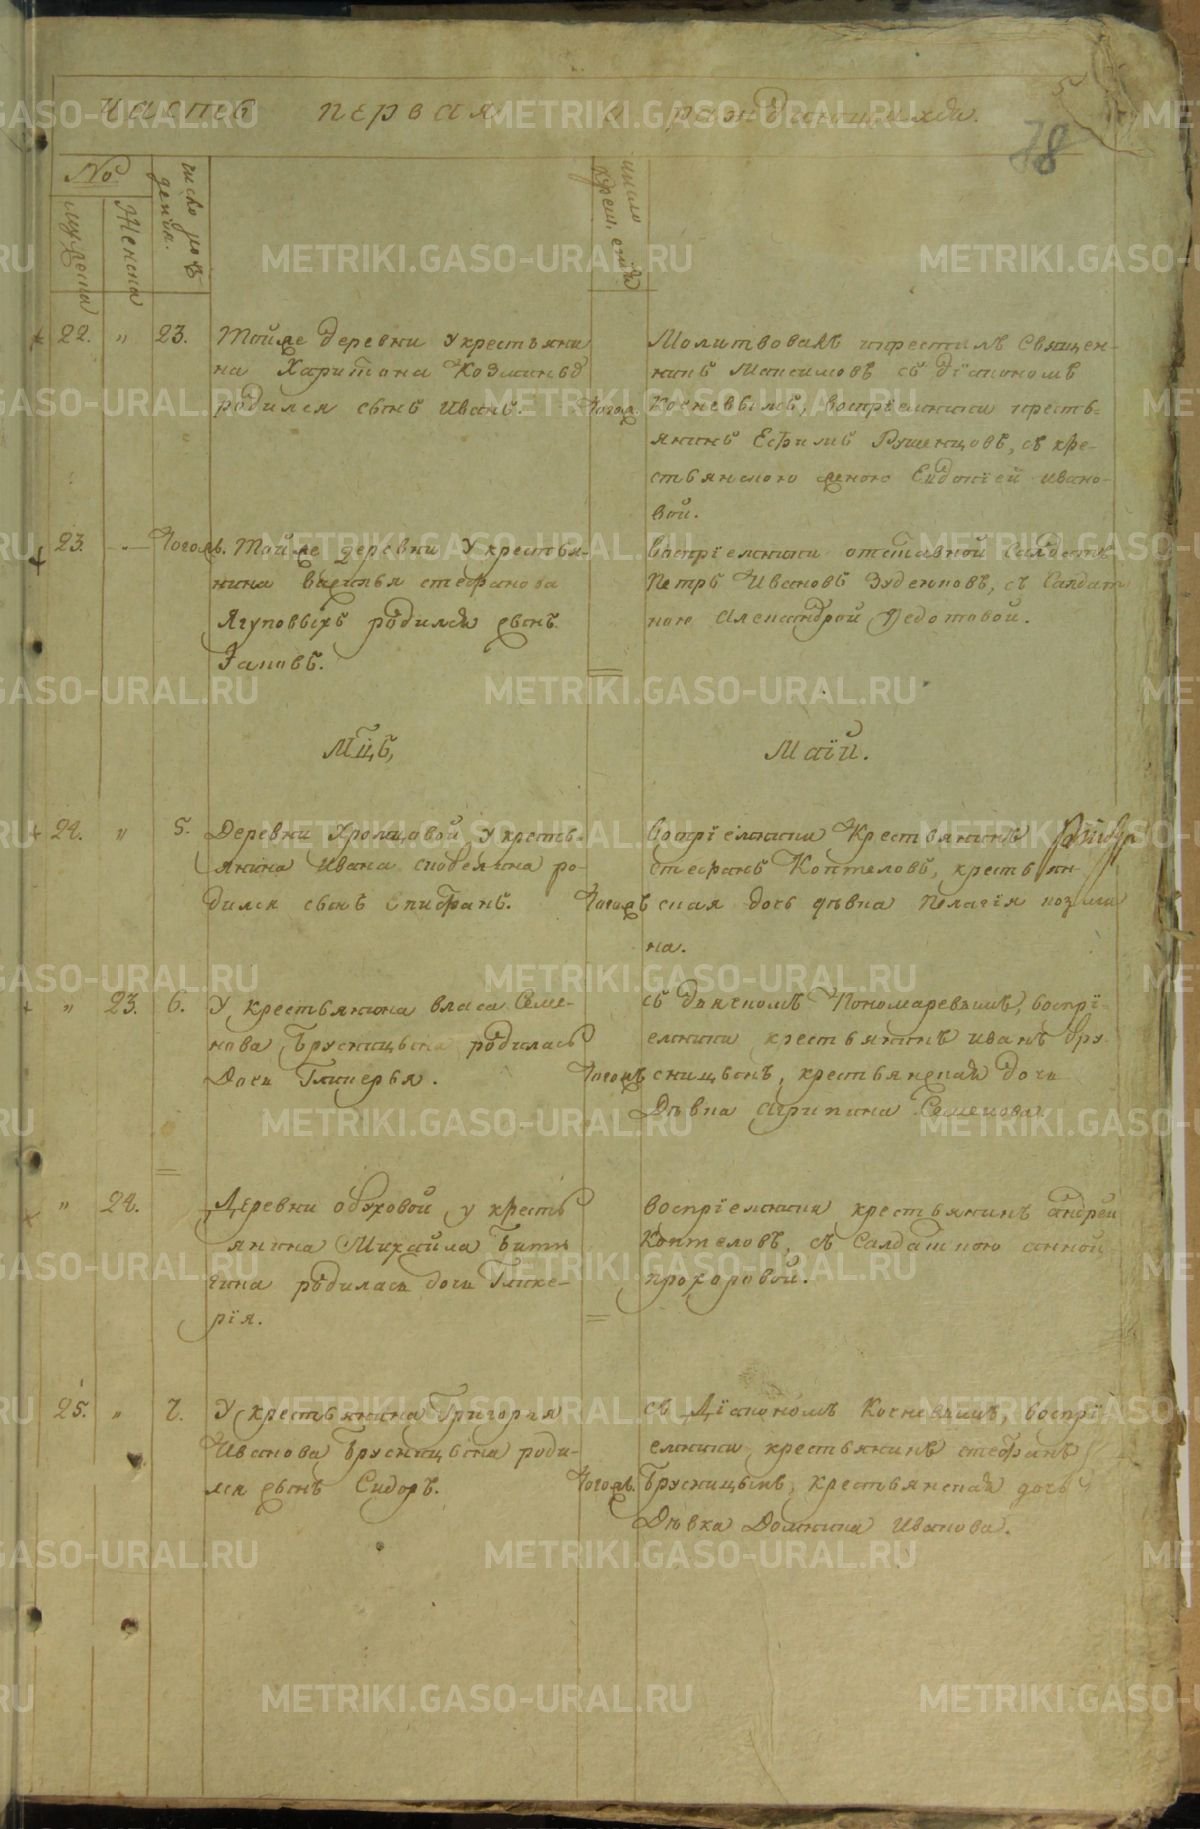 часть первая о раждающихся.
5
78
№
мужеска
женска
число рож
денiя.
число
крещ. ения
22. " 23. Тойже деревни у крестьяни
на Харитона Козмина
родился сынъ Иванъ.
тогож.
Молитвовалъ и крестилъ священ-
никъ Максимовъ съ дiакономъ
Косневымъ, воспрiемники кресть-
янинъ Ефимъ Рушенцовъ, съ кре-
стьянскою женою Евдокiей Ивано-
вой.
23. " Тогожъ. Тойже деревни у крестья-
нина василья стефанова
Ягуповыхъ родился сынъ
Iаковъ.
воспрiемники отставной Салдатъ
Петръ Ивановъ Зуденковъ, съ Салдат
кою Александрой Федотовой.
Мцъ,
Маiй.
24. " 5. Деревни Храмцовой у кресть-
янина Ивана родился сынъ Епифанъ.
Тогожъ
воспрiемники Крестьянинъ
стефанъ Коптеловъ, крестьян-
ская дочь дѣвка Пелагiя козми
на.
" 23. 6. У крестьянина власа Семе-
нова Брусницына родилась
Дочь Гликерья.
Тогожъ
съ Дьячкомъ Пономаревымъ, воспрi-
емники крестьянинъ иванъ Бру-
сницынъ, крестьянская дочь
Дѣвка Агрипина Семенова.
" 24. Деревни обуховой у кресть
янина Михайла Бити
гина родилась дочь Глике-
рiя.
воспрiемники крестьянинъ андрей
Коптеловъ, съ Салдаткою анной
прохоровой.
25. " 7. У крестьянина Григорья
Иванова Брусницына роди-
лся сынъ Сидоръ.
Тогожъ.
съ Дiакономъ Косневымъ, воспрi
емники крестьянинъ стефанъ
Брусницынъ, крестьянская дочь
Дѣвка Домника Иванова.
METRIKI.GASO-URAL.RU